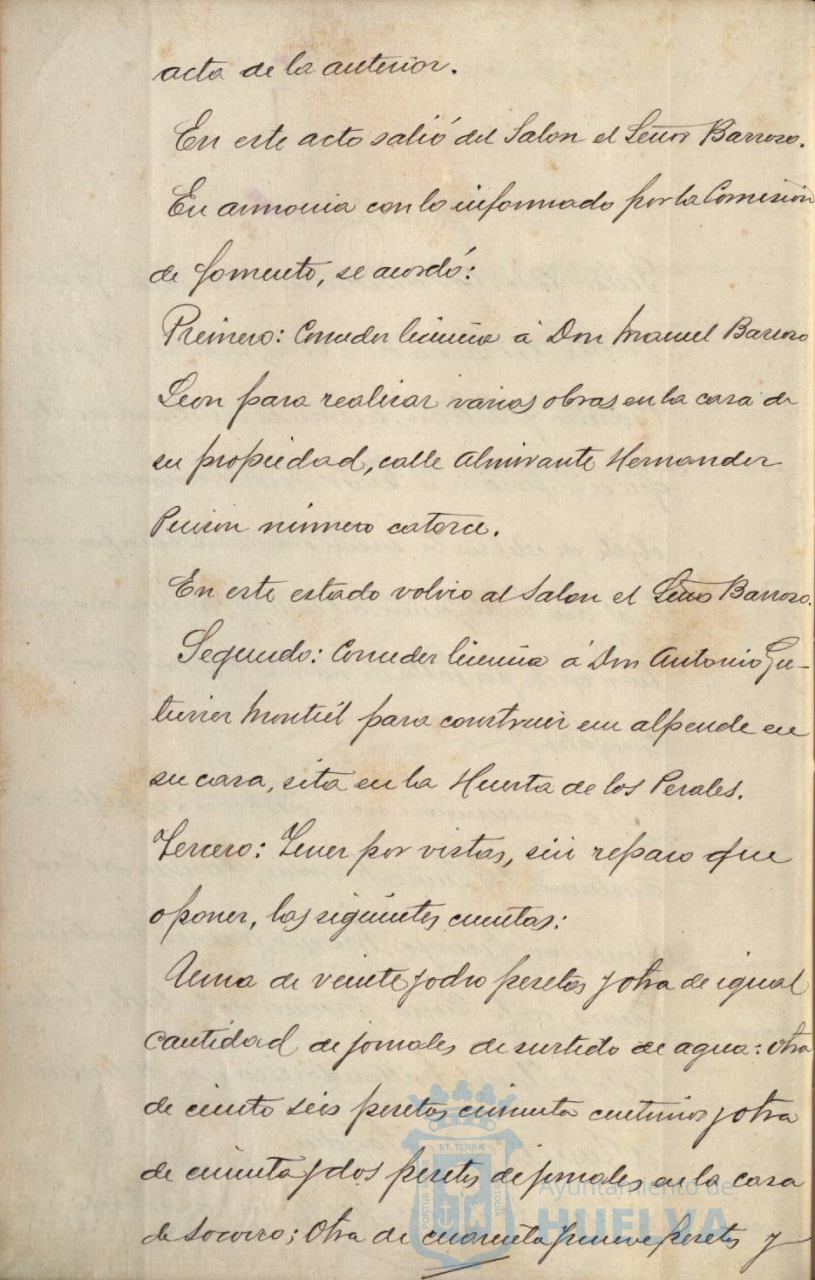 acta de la anterior.
En este acto salió del Salon el Señor Barroso.
En armonia con lo informado por la Comision
de fomento, se acordó:
Primero: Conceder licencia á Don Manuel Barroso
Leon para realizar varias obras en la casa de
su propiedad, calle Almirante Hernandez
Pinzon número catorce.
En este estado volvio al Salon el Señor Barroso.
Segundo: Conceder licencia á Don Antonio Gu-
tierrez Montiél para construir un alpende en
su casa, sita en la Huerta de los Perales.
Tercero: Tener por vistas, sin reparo que
oponer, las siguientes cuentas:
Una de veinte y ocho pesetas y otra de igual
cantidad de jornales de surtido de agua: otra
de ciento seis pesetas cincuenta centimos y otra
de cincuenta y dos pesetas de jornales en la casa
de socorro; Otra de cuarenta y nueve pesetas y
ET TERRÆ
PORTUS
CUSTODIA
Ayuntamiento de
HUELVA